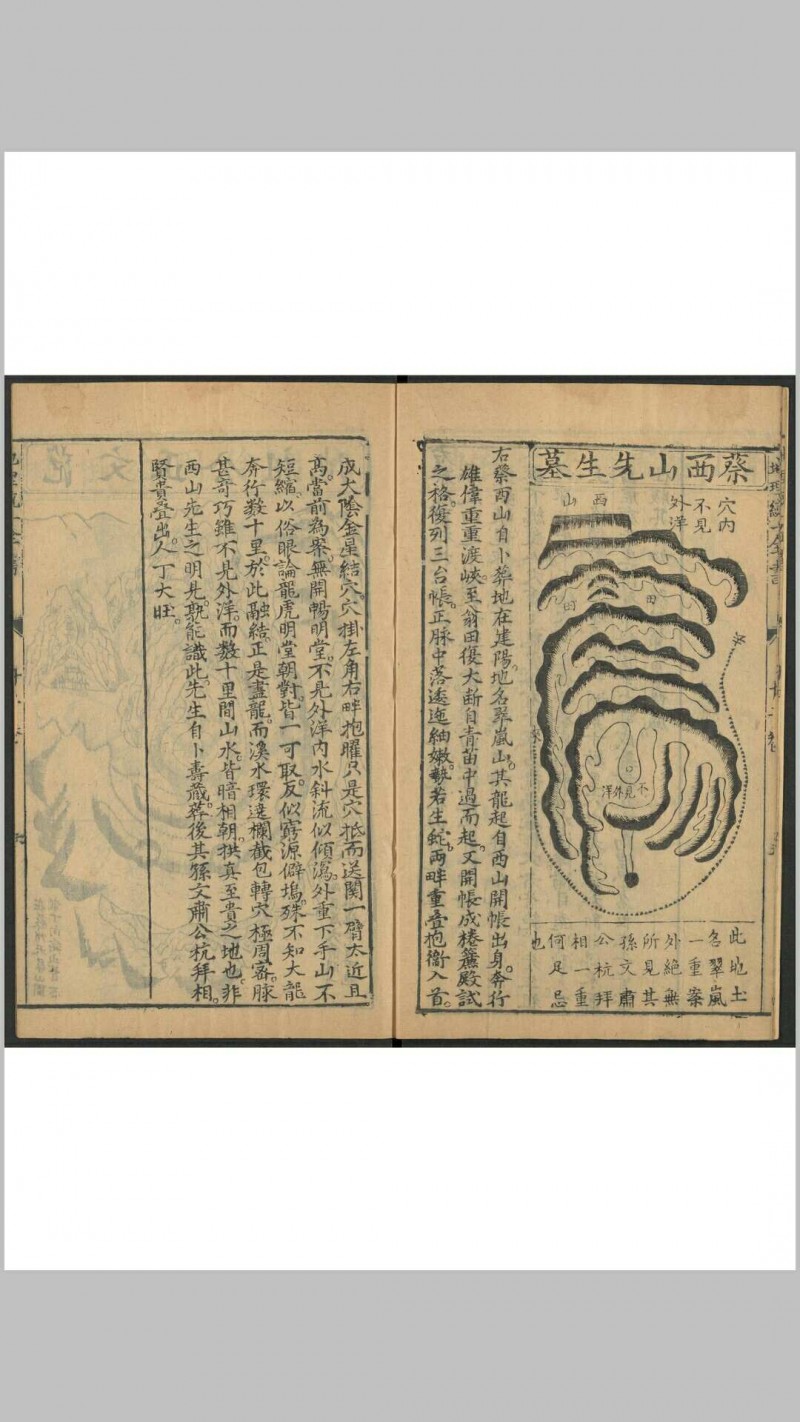 蔡西山先生墓
穴内
不見
外洋
西山
田
田
不見外洋
此地土
名翠嵐
一重案
外絶無
所見其
孫文肅
公杭拜
相一重
何足忌
也
右蔡西山自卜葬地在建陽。地名翠嵐山。其龍起自西山開帳出身。奔行
雄偉重重渡峽。至翁田復大断自青苗中過而起。又開帳成捲簾殿試
之格。復列三台帳。正脉中落逶迤紬嫩。㔟若生蛇。両畔重疊抱衛入首。
成太陰金星結穴。穴掛左角右畔抱曜只是穴抵而送関一臂太近且
高。當前為案。無開暢明堂。不見外洋内水斜流似傾瀉。外重下手山不
短縮。以俗眼論龍虎明堂朝對。皆一可取。反似窮源僻塢。殊不知大龍
奔行数十里。於此融結。正是盡龍。而溪水環遶欄截包轉穴極周宻。脉
甚竒巧雖不見外洋。而数十里間山水。皆暗相朝。拱真至貴之地也。非
西山先生之明見。孰能識此先生自卜壽藏。葬後其孫文肅公杭拜相。
賢貴疊出。人丁大旺。